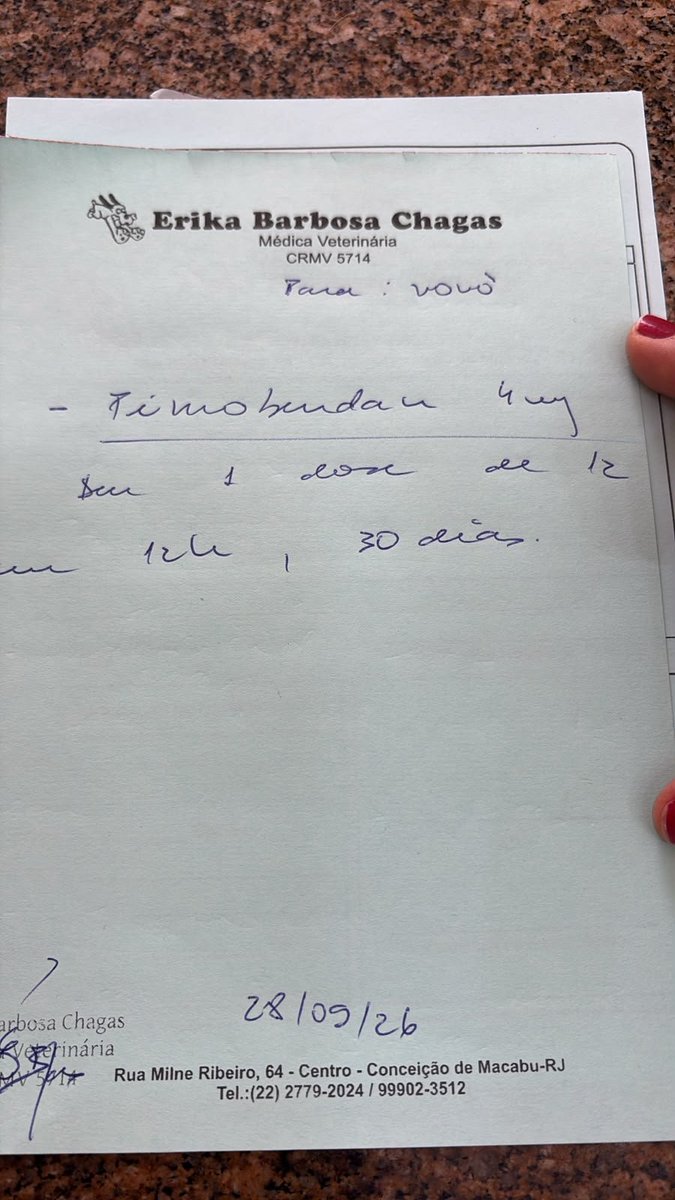 Erika Barbosa Chagas
Médica Veterinária
CRMV 5714
Para : vovô
- Pimobendan 4mg
Dar 1 dose de 12
em 12h , 30 dias.
28/09/26
arbosa Chagas
Veterinária
MV 5714
Rua Milne Ribeiro, 64 - Centro - Conceição de Macabu-RJ
Tel.:(22) 2779-2024 / 99902-3512